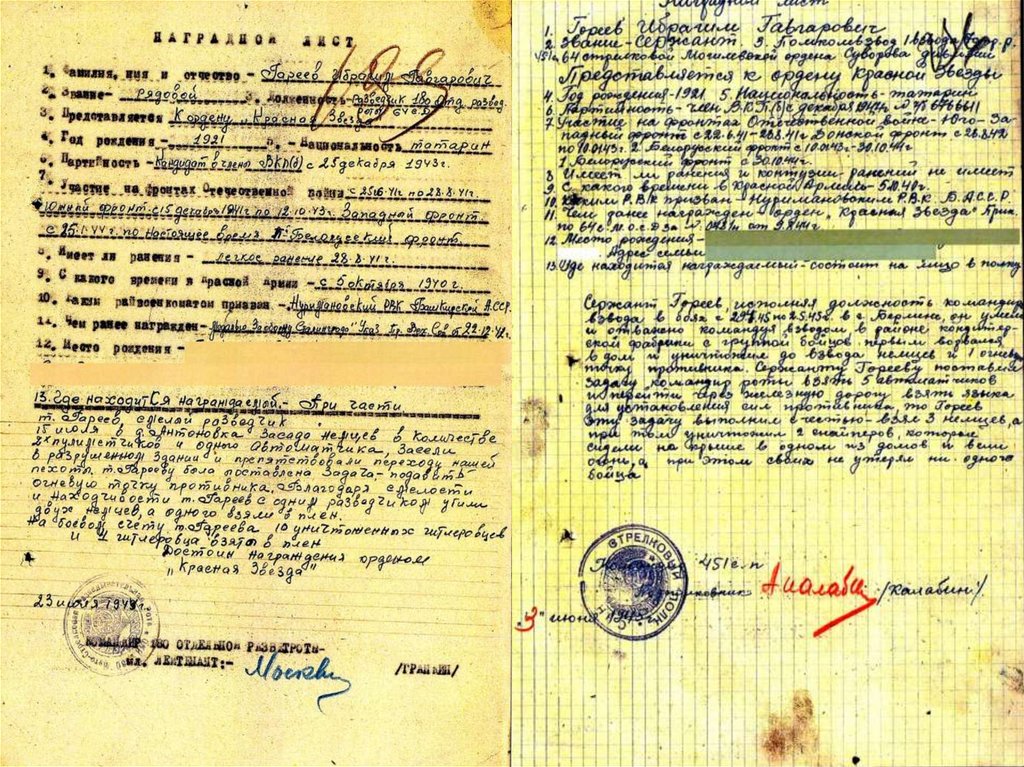 НАГРАДНОЙ ЛИСТ
1. Фамилия, имя и отчество - Гареев Ибрагим Гавгарович
2. Звание - рядовой 3. Должность - Разведчик 180 отд. развед.
роты 64 с.д.
3. Представляется К ордену "Красная Звезда"
4. Год рождения - 1921 5. - Национальность - татарин
6. Партийность - Кандидат в члены ВКП(б) с 25 декабря 1943г.
7.
Участие на фронтах Отечественной войны - с 25.6.41г по 28.8.41г.
Южный фронт с 15 декабря 1941г по 12.10.43г. Западный фронт
с 25.1.44г. по настоящее время II Белорусский фронт
8. Имеет ли ранения - легкое ранение 28.8.41г.
9. С какого времени в Красной Армии - с 5 октября 1940г.
10. Каким райвоенкоматом призван - Нуримановский РВК Башкирской А.ССР.
11. Чем ранее награжден - Медалью За оборону Сталинграда Указ. Пр. Вер. Сов. от 22.12.42г.
12. Место рождения -
13. Где находится награждаемый - При части
т. Гареев смелый разведчик
15 июля в д. Антоновка засада немцев в количестве
2х пулиметчиков и одного Автоматчика, Засели
в разрушенном Здании и препятствовали переходу нашей
пехоты. т. Гарееву была поставлена Задача - подавить
огневую точку противника. Благодаря смелости
и находчивости т. Гареев с одним разведчиком убили
двух немцев, а одного взяли в плен.
На боевом счету т. Гареева 10 уничтоженных гитлеровцев
и 4 гитлеровца взяты в плен
Достоин награждения орденом
"Красная Звезда"
23 июля 1944г.
КОМАНДИР 180 ОТДЕЛЬНОЙ РАЗВЕДРОТЫ-
мл. ЛЕЙТЕНАНТ:-
Наградной лист
1. Гореев Ибрагим Гавгарович
2. Звание - Сержант 3. Помкомвзвод 1 взвода
451 с.п. 64 стрелковой Могилевской ордена Суворова дивизии
Представляется к ордену Красной Звезды
4. Год рождения - 1921 5. Национальность - татарин
6. Партийность - член В.К.П(б) с декабря 1944г. № 7676641
7 Участие на фронтах Отечественной войне - Юго-За-
падный фронт с 22.6.41 - 28.8.41г Донской фронт с 28.8.42
по 10.01.43г. 2. Белорусский фронт с 10.01.43г - 30.10.44г
1 Белорусский фронт с 30.10.44г.
8 Имеет ли ранения и контузии - ранений не имеет
9. С какого времени в Красной Армии - 5.10.40г.
10. Каким Р.В.К призван - Нуримановским Р.В.К. Б.А.С.С.Р.
11. Чем ранее награжден - орден "Красная Звезда" Прик.
по 64 с.д.
12. Место рождения -
Адрес семьи
13. Где находится награждаемый - состоит на лицо в полку
Сержант Гореев, исполняя должность командира
взвода в боях с 29.4.45 по 2.5.45г. в г. Берлине, он умело
и отважно командуя взводом в районе кондитер-
ской фабрики с группой бойцов первым ворвался
в дом и уничтожил до взвода немцев и 1 огневую
точку противника. Сержанту Горееву поставил
задачу командир роты взять 5 автоматчиков
и перейти через железную дорогу взять языка
для установления сил противника, то Гореев
Эту задачу выполнил с честью - взял 3 немцев, а
при том уничтожил 2 снайперов, которые
сидели на крыше в одном из домов и вели
огонь, и при этом своих не утерял ни одного
бойца
СТРЕЛКОВЫЙ ПОЛК
451 с.п
Подполковник /Калабин/
"3" июня 1945г.